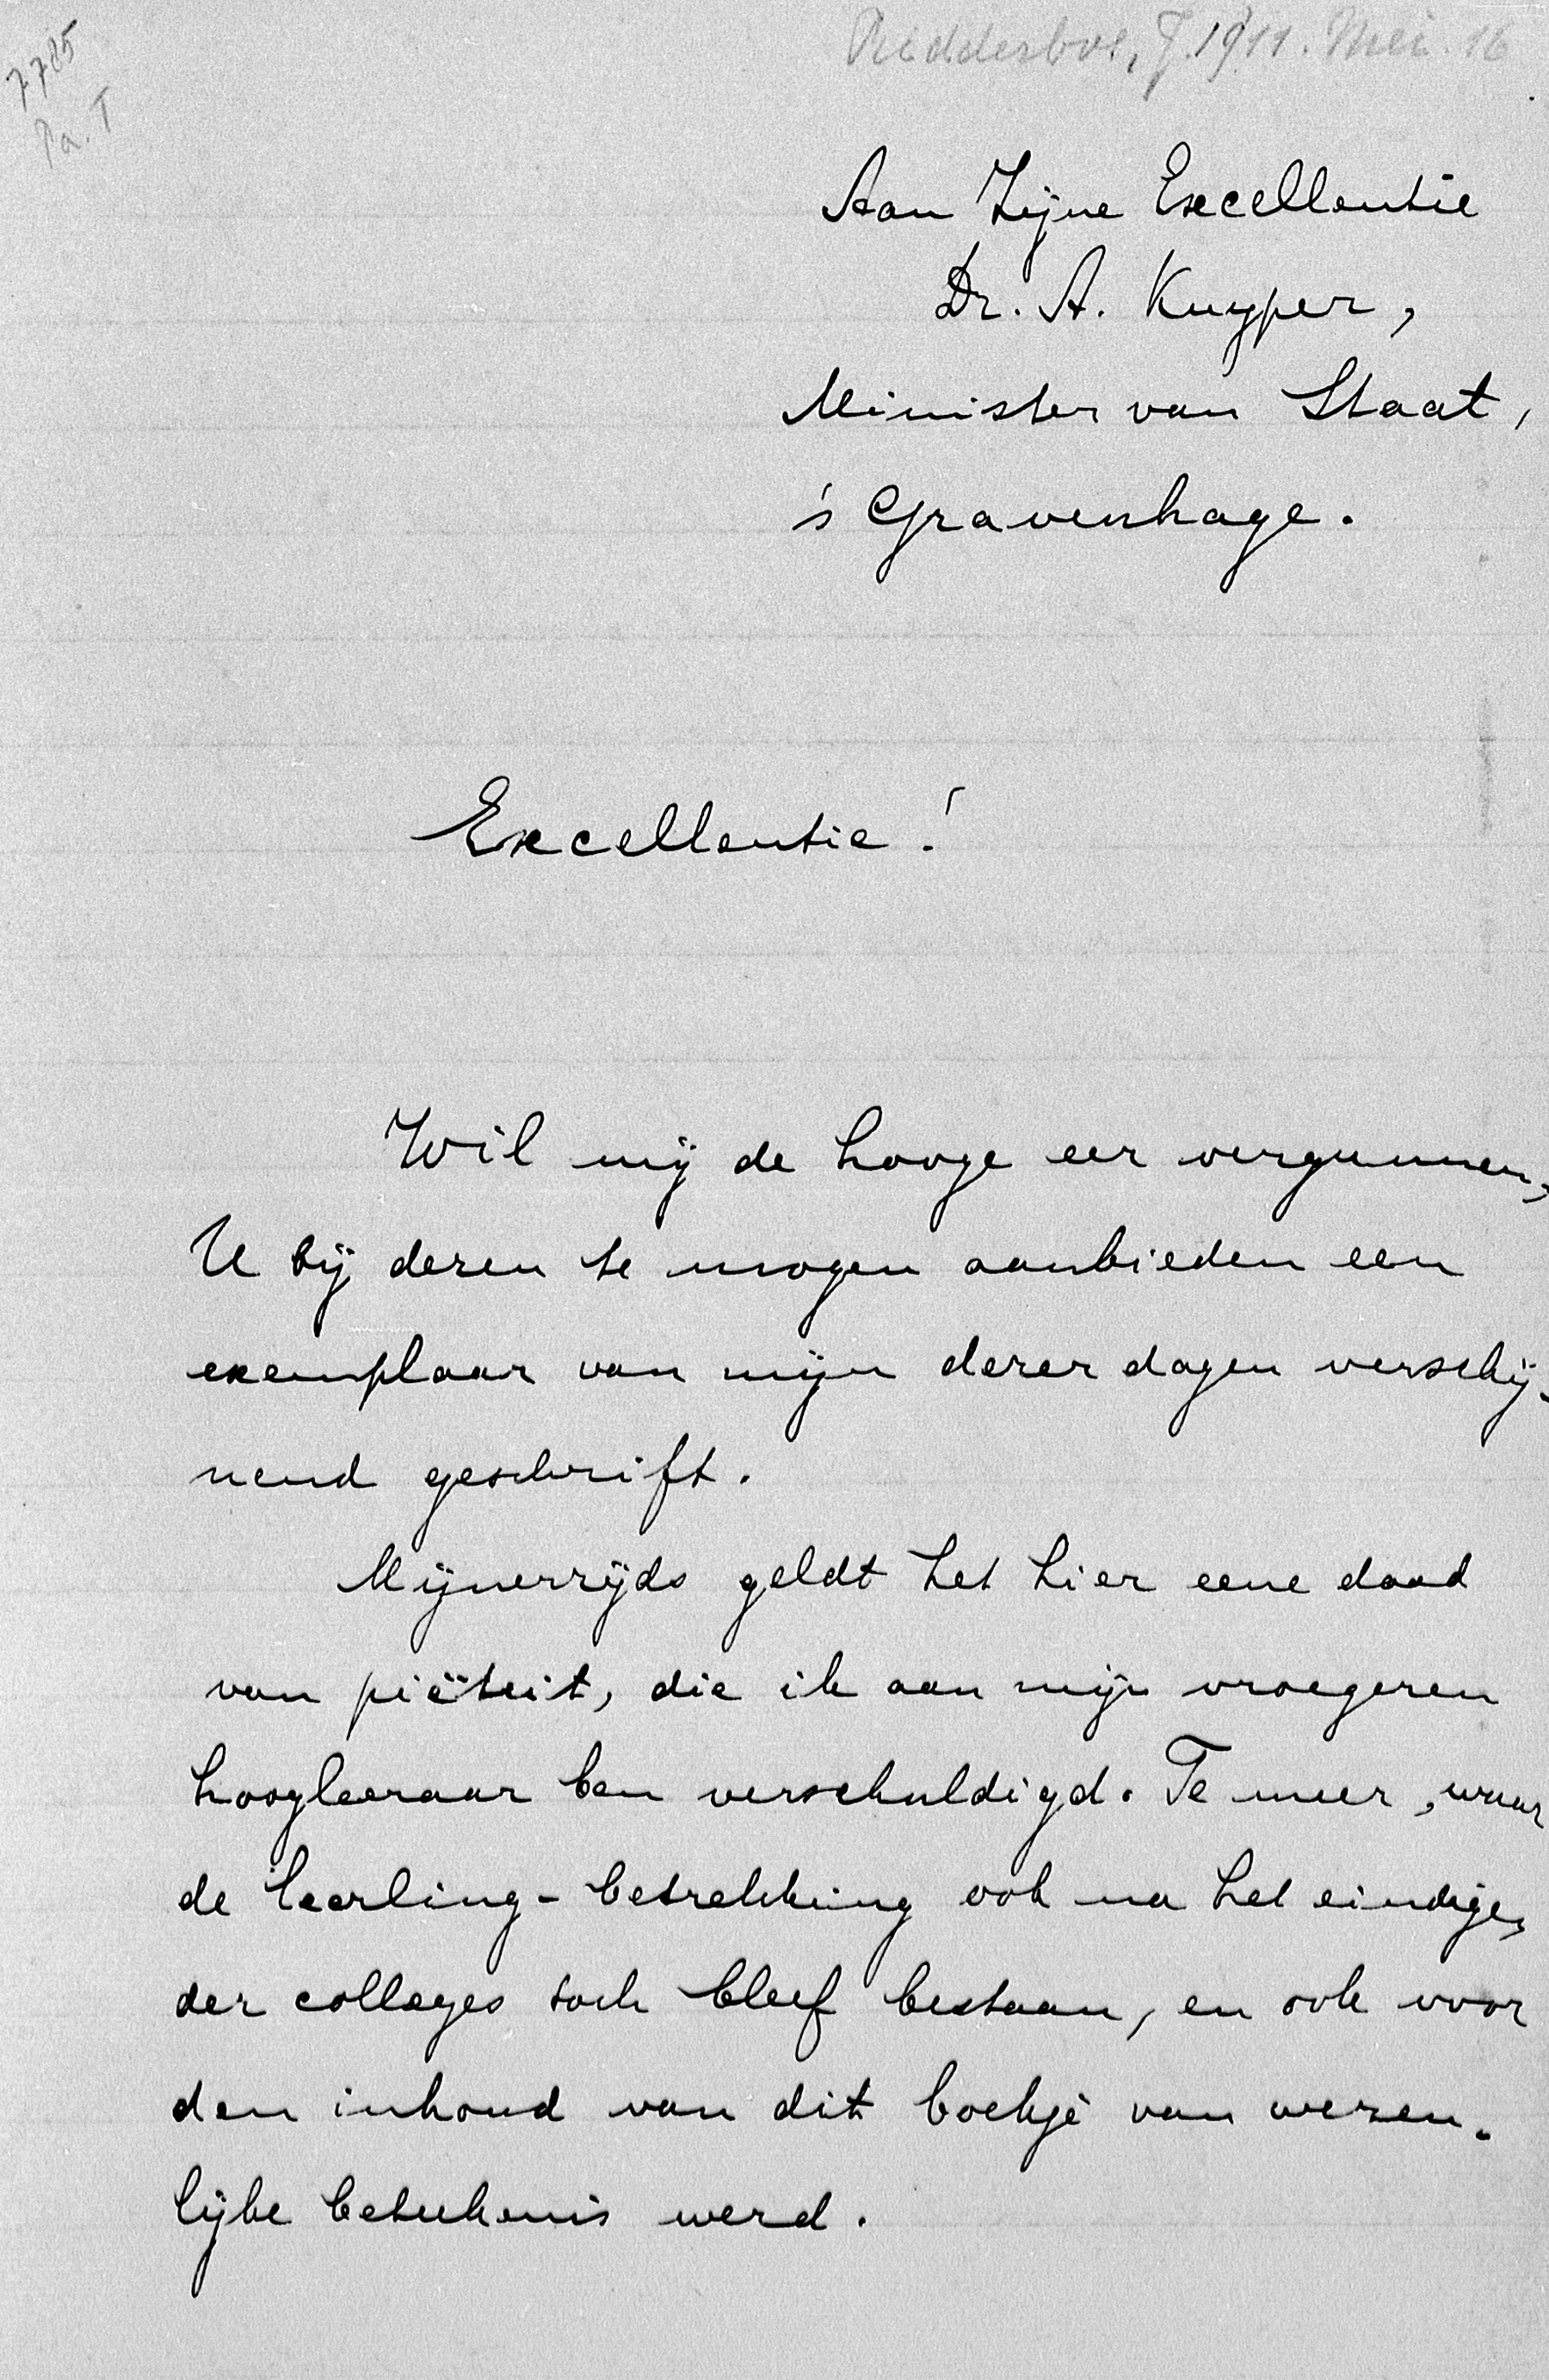 7785
Pa. T
Ridderbos, J. 1911. Mei. 16
Aan Zijne Excellentie
Dr. A. Kuyper,
Minister van Staat,
's Gravenhage.
Excellentie!
Wil mij de hooge eer vergunnen,
U bij dezen te mogen aanbieden een
exemplaar van mijn dezer dagen verschij-
nend geschrift.
Mijnerzijds geldt het hier eene daad
van piëteit, die ik aan mijn vroegeren
hoogleeraar ben verschuldigd. Te meer, waar
de leerling-betrekking ook na het eindigen
der colleges toch bleef bestaan, en ook voor
den inhoud van dit boekje van wezen-
lijke beteekenis werd.